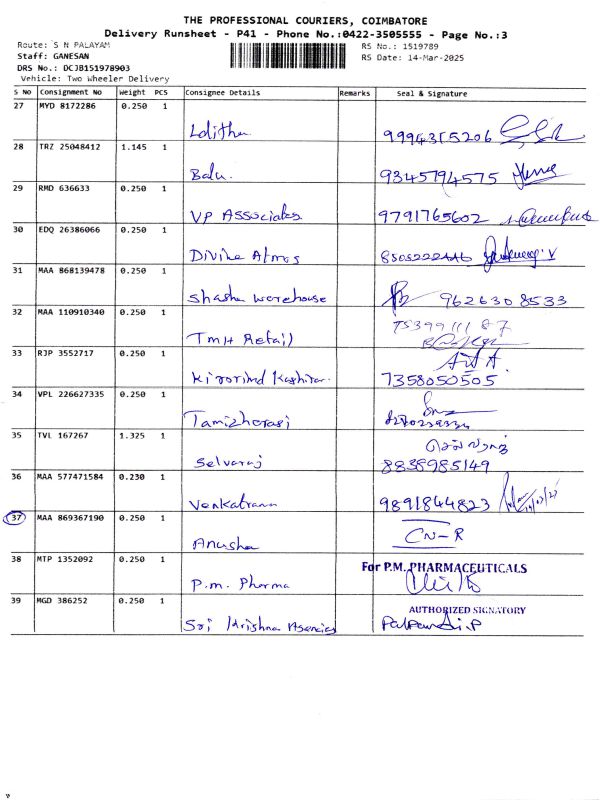 THE PROFESSIONAL COURIERS, COIMBATORE
Delivery Runsheet - P41 - Phone No.:0422-3505555 - Page No.:3
Route: S N PALAYAM
RS No.: 1519789
Staff: GANESAN
RS Date: 14-Mar-2025
DRS No.: DCJB151978903
Vehicle: Two Wheeler Delivery
S No Consignment No Weight PCS Consignee Details Remarks Seal & Signature
27 MYD 8172286 0.250 1
Lalitha 9994315206
28 TRZ 25048412 1.145 1
Balu. 9345794575
29 RMD 636633 0.250 1
VP Associates 9791765602
30 EDQ 26386066 0.250 1
Divine Atmos
31 MAA 868139478 0.250 1
Shasha Warehouse 9626308533
32 MAA 110910340 0.250 1
TMH Retail
33 RJP 3552717 0.250 1
7358050505
34 VPL 226627335 0.250 1
Tamizharasi
35 TVL 167267 1.325 1
Selvaraj 8838985149
36 MAA 577471584 0.230 1
Venkatraman 9891844823
37 MAA 869367190 0.250 1
Anusha CN-R
38 MTP 1352092 0.250 1
For P.M. PHARMACEUTICALS
P.m. Pharma
39 MGD 386252 0.250 1
AUTHORIZED SIGNATORY
Sri Krishna Agencies